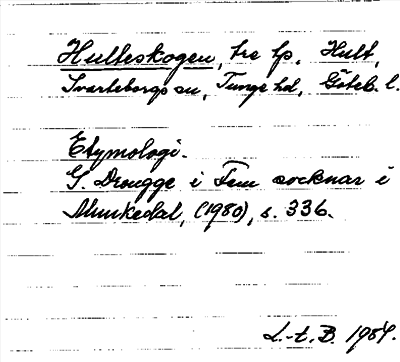 Hulteskogen, tre lp, Hult,
Svarteborgs sn, Tunge hd, Göteb. l.
Etymologi.
G. Drougge i Fem socknar i
Munkedal, (1980), s. 336.
L.-t. B. 1984.